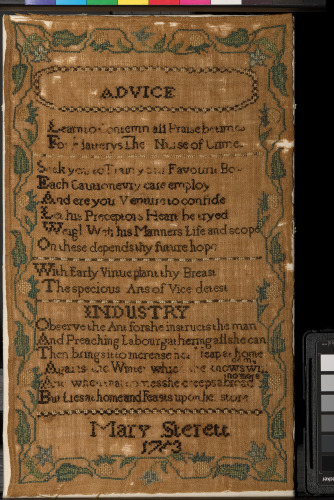 ADVICE
Learn to Contemn all Praise betimes
For Flatterys The Nurse of Crimes
Seek you to Train your Favourit Boy
Each Cautionevry care employ
And ere you Venture to confide
Let his Preceptors Heart be tryed
Weigh Well his Manners Life and scope
On these depends thy future hope
With Early Virtue plant thy Breast
The specious Arts of Vice detest
INDUSTRY
Observe the Ant for she instructs the man
And Preaching Labour gathering all she can
Then brings it to increase her heap at home
Against the Winter which she knows will
And when that comes she creeps abroad
But Lies at home and Feasts upon her store
Mary Sterett